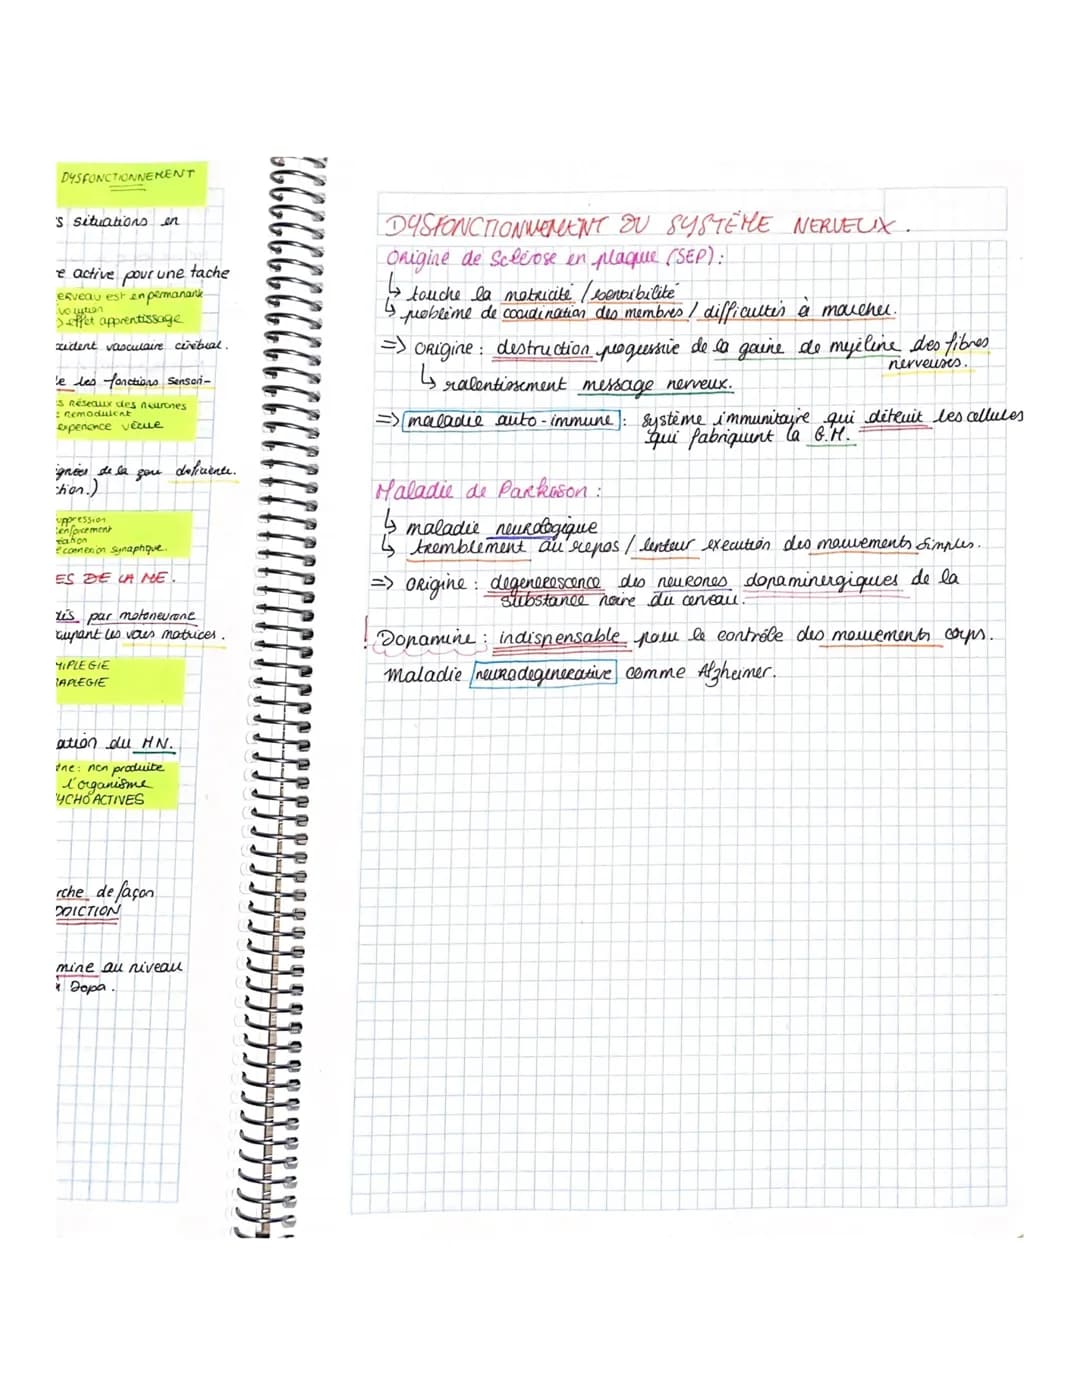 DYSFONCTIONNEMENT
s situations en
e active pour une tache
erveau est en permanank
volution
effet apprentissage
cident vasculaire cérébual.
le les fonctions Sensori-
s Réseaux des neurones
e remodulent
experience vécue
ignées de la zone deficiente.
ction.)
uppression
enforcement
éation
e connexion synaphque.
ES DE LA ME.
tis par motoneurone
cupant les voies motrices.
MIPLEGIE
RAPLEGIE
ation du HN.
ène: non produite
l'organisme
YCHOACTIVES
rche de façon
DDICTION
mine au niveau
Dopa.
DYSFONCTIONNEMENT DU SYSTÈME NERVEUX.
Origine de Sclérose en plaque (SEP):
↳ touche la motricité / sensibilité
↳ problème de coordination des membres / difficultés à marcher.
=> Origine: destruction progressive de la gaine de myéline des fibres
nerveuses.
↳ ralentissement message nerveux.
=> maladie auto-immune: Système immunitaire qui détruit les cellules
qui fabriquent la G.M.
Maladie de Parkison:
↳ maladie neurologique
↳ tremblement au repos / lenteur execution des mouvements simples.
=> origine: degenerescence des neurones dopaminergiques de la
substance noire du cerveau.
! Dopamine: indispensable pour le contrôle des mouvements corps.
Maladie neurodegenerative comme Alzheimer.